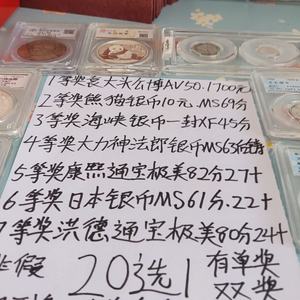 1等奖袁大头公博AU50.1700元
2等奖熊猫银币10元MS69分
3等奖海峡银币一封XF45分
4等奖大力神法郎银币MS63
5等奖康熙通宝极美82分27+
6等奖日本银币MS61分.22+
7等奖洪德通宝极美80分24+
非假
20选1
有单奖
双奖